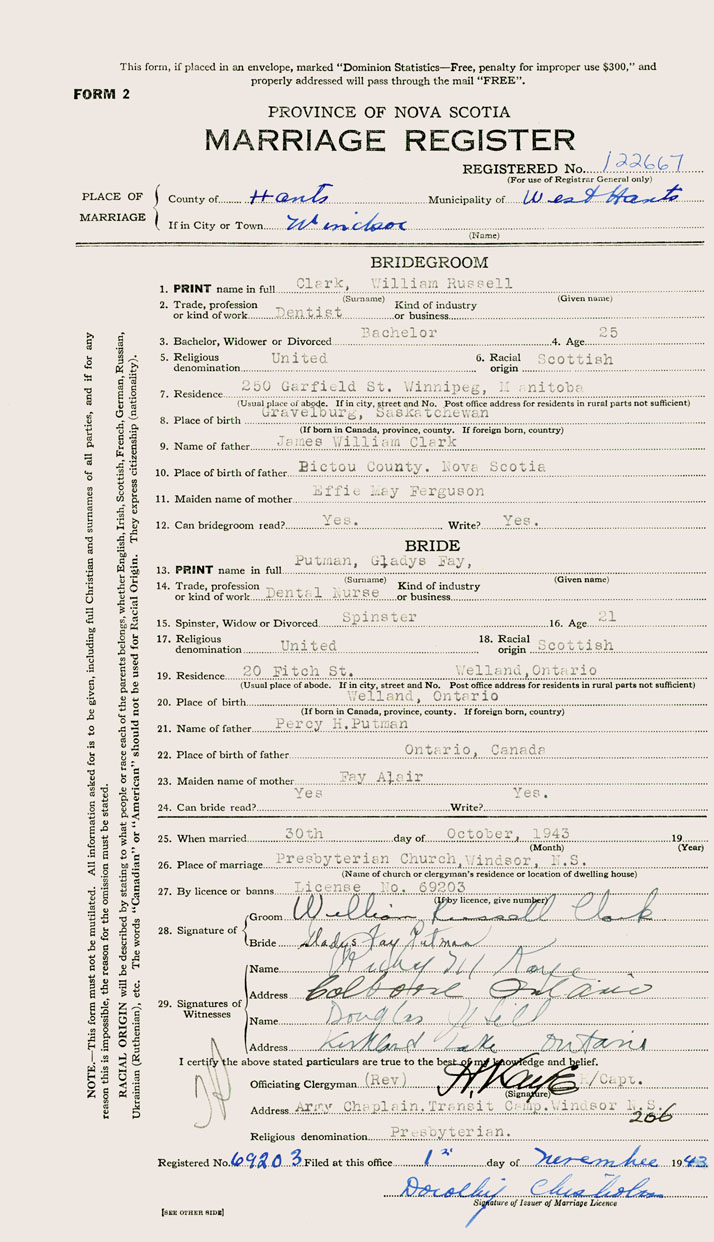 This form, if placed in an envelope, marked “Dominion Statistics—Free, penalty for improper use $300,” and
properly addressed will pass through the mail “FREE”.
FORM 2
PROVINCE OF NOVA SCOTIA
MARRIAGE REGISTER
REGISTERED No. 122667
(For use of Registrar General only)
PLACE OF MARRIAGE
County of Hants Municipality of West Hants
If in City or Town Windsor
(Name)
BRIDEGROOM
1. PRINT name in full Clark, William Russell
(Surname) (Given name)
2. Trade, profession or kind of work Dentist Kind of industry or business
3. Bachelor, Widower or Divorced Bachelor 4. Age 25
5. Religious denomination United 6. Racial origin Scottish
7. Residence 250 Garfield St. Winnipeg, M anitoba
(Usual place of abode. If in city, street and No. Post office address for residents in rural parts not sufficient)
8. Place of birth Gravelburg, Saskatchewan
(If born in Canada, province, county. If foreign born, country)
9. Name of father James William Clark
10. Place of birth of father Pictou County. Nova Scotia
11. Maiden name of mother Effie May Ferguson
12. Can bridegroom read? Yes. Write? Yes.
BRIDE
13. PRINT name in full Putman, Gladys Fay,
(Surname) (Given name)
14. Trade, profession or kind of work Dental Nurse Kind of industry or business
15. Spinster, Widow or Divorced Spinster 16. Age 21
17. Religious denomination United 18. Racial origin Scottish
19. Residence 20 Fitch St. Welland, Ontario
(Usual place of abode. If in city, street and No. Post office address for residents in rural parts not sufficient)
20. Place of birth Welland, Ontario
(If born in Canada, province, county. If foreign born, country)
21. Name of father Percy H.Putman
22. Place of birth of father Ontario, Canada
23. Maiden name of mother Fay Alair
24. Can bride read? Yes Write? Yes.
25. When married 30th day of October, 1943 19
(Month) (Year)
26. Place of marriage Presbyterian Church, Windsor, N.S.
(Name of church or clergyman's residence or location of dwelling house)
27. By licence or banns License No. 69203
(If by licence, give number)
28. Signature of
Groom William Russell Clark
Bride Gladys Fay Putman
29. Signatures of Witnesses
Name
Address Colborne Ontario
Name Douglas
Address Kirkland Lake Ontario
I certify the above stated particulars are true to the best of my knowledge and belief.
Officiating Clergyman (Rev) H/Capt.
(Signature)
Address Army Chaplain. Transit Camp. Windsor N.S.
206
Religious denomination Presbyterian.
Registered No. 69203 Filed at this office 1st day of November 1943
Dorothy Chisholm
Signature of Issuer of Marriage Licence
[SEE OTHER SIDE]
NOTE.—This form must not be mutilated. All information asked for is to be given, including full Christian and surnames of all parties, and if for any
reason this is impossible, the reason for the omission must be stated.
RACIAL ORIGIN will be described by stating to what people or race each of the parents belongs, whether English, Irish, Scottish, French, German, Russian,
Ukrainian (Ruthenian), etc. The words “Canadian” or “American” should not be used for Racial Origin. They express citizenship (nationality).